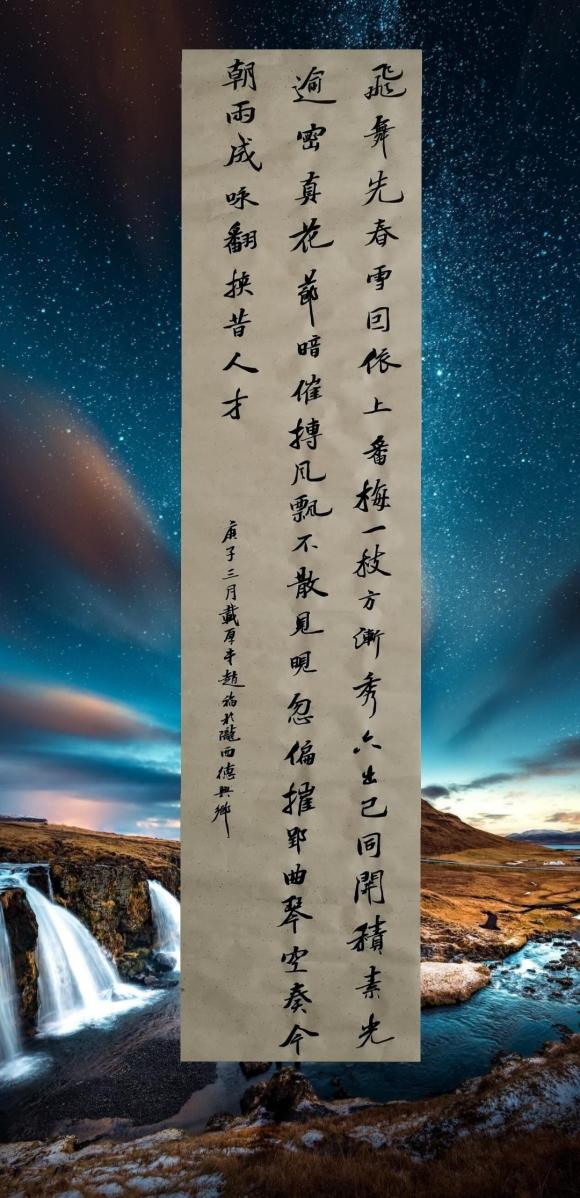 飛舞先春雪因依上番梅一枝方漸秀六出已同開積素光
逾密真花節暗催摶風飄不散見晛忽偏摧郢曲琴空奏今
朝雨成咏翻挾昔人才
庚子三月載厚趙福於隴西德興鄉